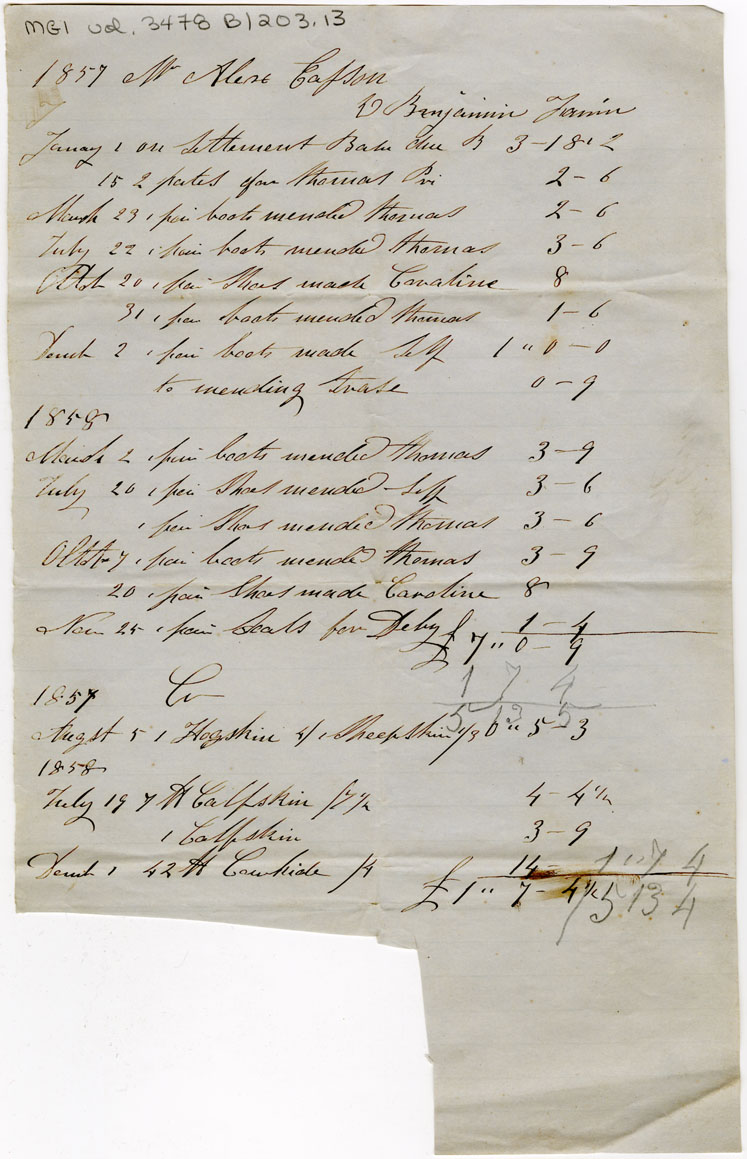 MG1 vol. 3478 B/203.13
1857 Mr Alexr
Benjamin
Janay 1 on Settlement Balu due B 3-18-2
15 2 pates for Thomas 2-6
March 23 1 pair boots mended Thomas 2-6
July 22 1 pair boots mended Thomas 3-6
Octbr 20 1 pair Shoes made Caroline 8
31 1 pair boots mended Thomas 1-6
Decmb 2 1 pair boots made Self 1"0-0
to mending 0-9
1858
March 2 1 pair boots mended Thomas 3-9
July 20 1 pair Shoes mended Self 3-6
1 pair Shoes mended Thomas 3-6
Octbr 7 1 pair boots mended Thomas 3-9
20 1 pair Shoes made Caroline 8
Nov 25 1 pair for 1-4
£ 7"0-9
1 7 4
5 13 5
1857 Cr
Augst 5 1 Hogskin 4/ 1 Sheepskin 1/3 0"5-3
1858
July 19 7 lb Calfskin /7½ 4-4½
1 Calfskin 3-9
Decmb 1 42 lb Cowhide /4 14-
1"7 4
£1"7-4½
5 13 4